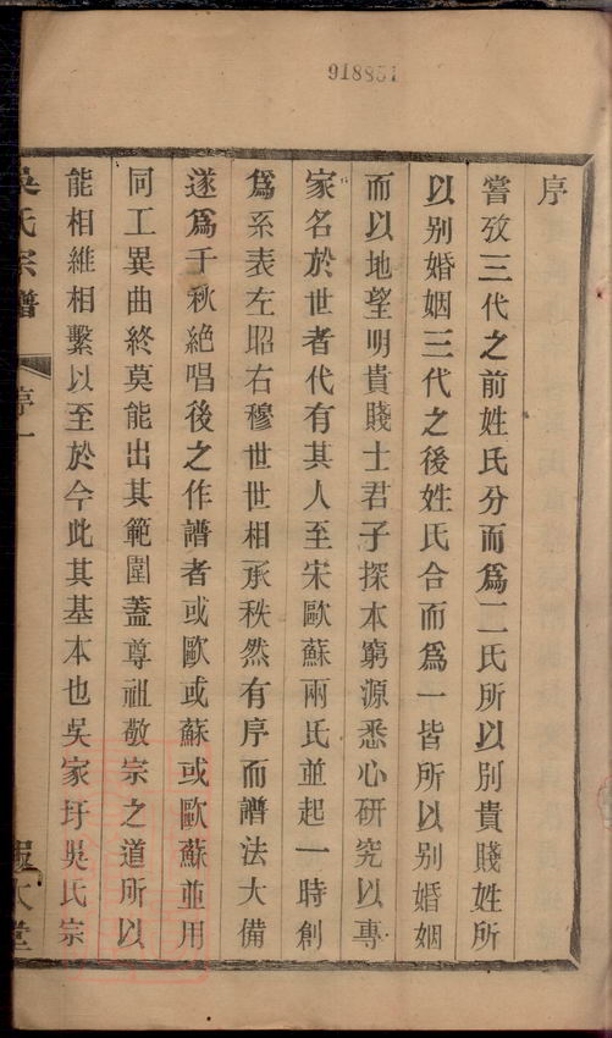 918851
序
嘗攷三代之前姓氏分而爲二氏所以別貴賤姓所
以別婚姻三代之後姓氏合而爲一皆所以別婚姻
而以地望明貴賤士君子探本窮源悉心研究以專
家名於世者代有其人至宋歐蘇兩氏並起一時創
爲系表左昭右穆世世相承秩然有序而譜法大備
遂爲千秋絶唱後之作譜者或歐或蘇或歐蘇並用
同工異曲終莫能出其範圍蓋尊祖敬宗之道所以
能相維相繫以至於今此其基本也吳家圩吳氏宗
吳氏宗譜
序一